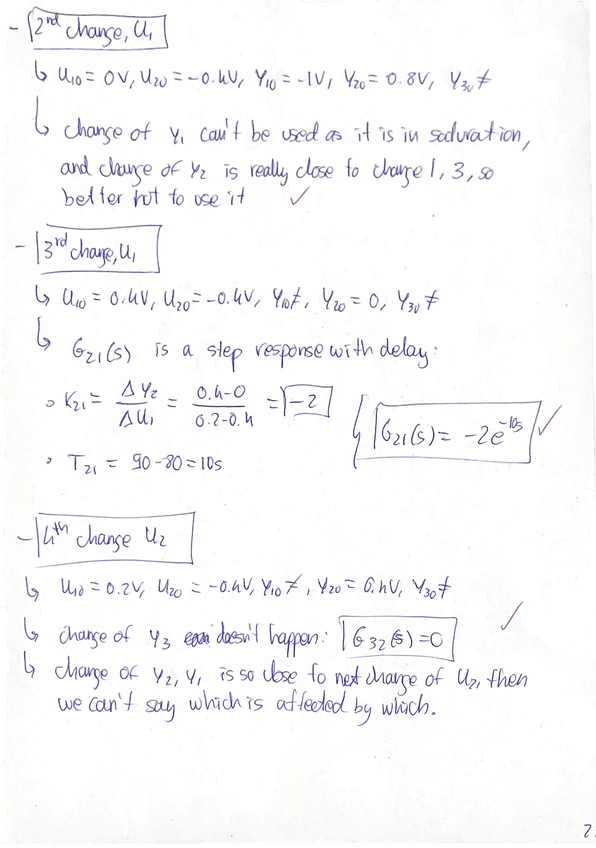 - 2nd change, U1
↳ U10 = 0V, U20 = -0.4V, Y10 = -1V, Y20 = 0.8V, Y30 ≠
↳ change of Y1 can't be used as it is in saduration,
and change of Y2 is really close to change 1, 3, so
better not to use it ✓
- 3rd change, U1
↳ U10 = 0.4V, U20 = -0.4V, Y10 ≠, Y20 = 0, Y30 ≠
↳ G21(s) is a step response with delay:
° K21 = ΔY2/ΔU1 = (0.4-0)/(0.2-0.4) = -2
G21(s) = -2e^-10s ✓
° T21 = 90-80 = 10s
- 4th change U2
↳ U10 = 0.2V, U20 = -0.4V, Y10 ≠, Y20 = 0.4V, Y30 ≠
↳ change of Y3 doesn't happen: G32(s) = 0 ✓
↳ change of Y2, Y1 is so close to next change of U2, then
we can't say which is affected by which.
2.